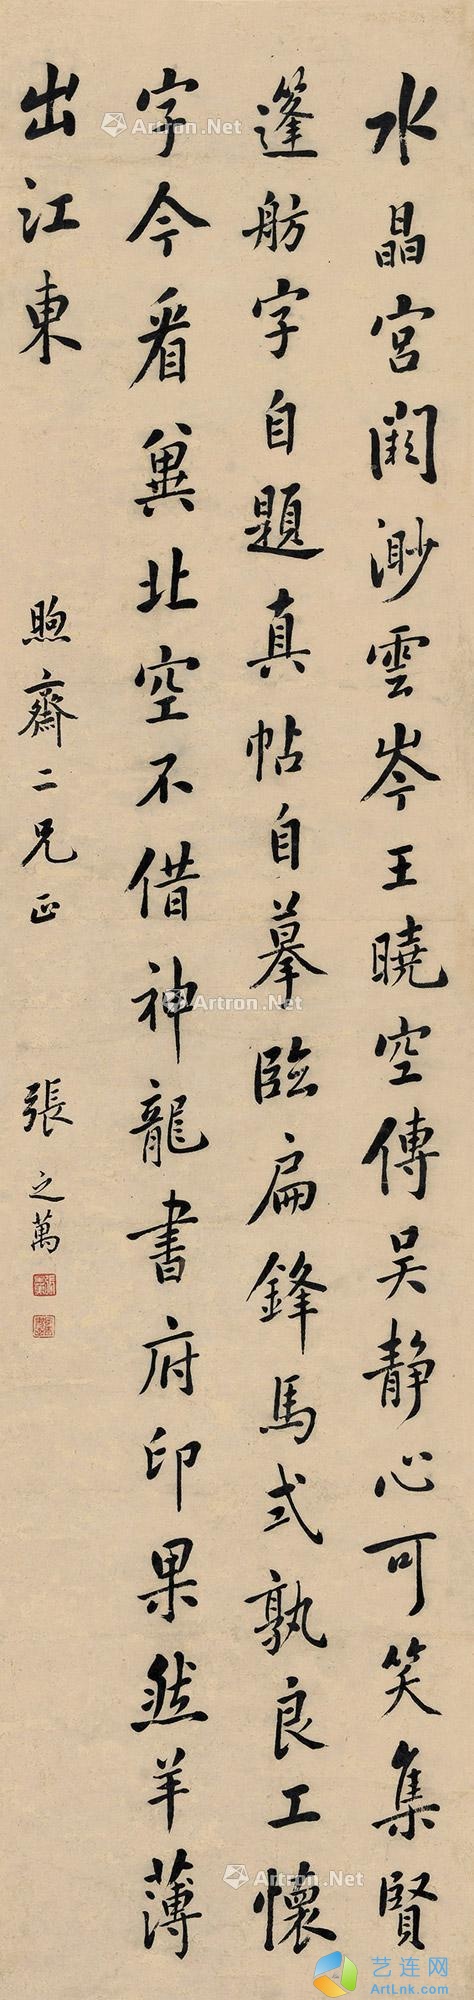 水晶宮闕渺雲岑王曉空傳吴静心可笑集賢
篷舫字自題真帖自摹臨扁鋒馬式孰良工懷
字今看冀北空不借神龍書府印果然羊薄
出江東
煦齋二兄正
張之萬
Artron.Net
Artron.Net
Artron.Net
艺连网
ArtLnk.com